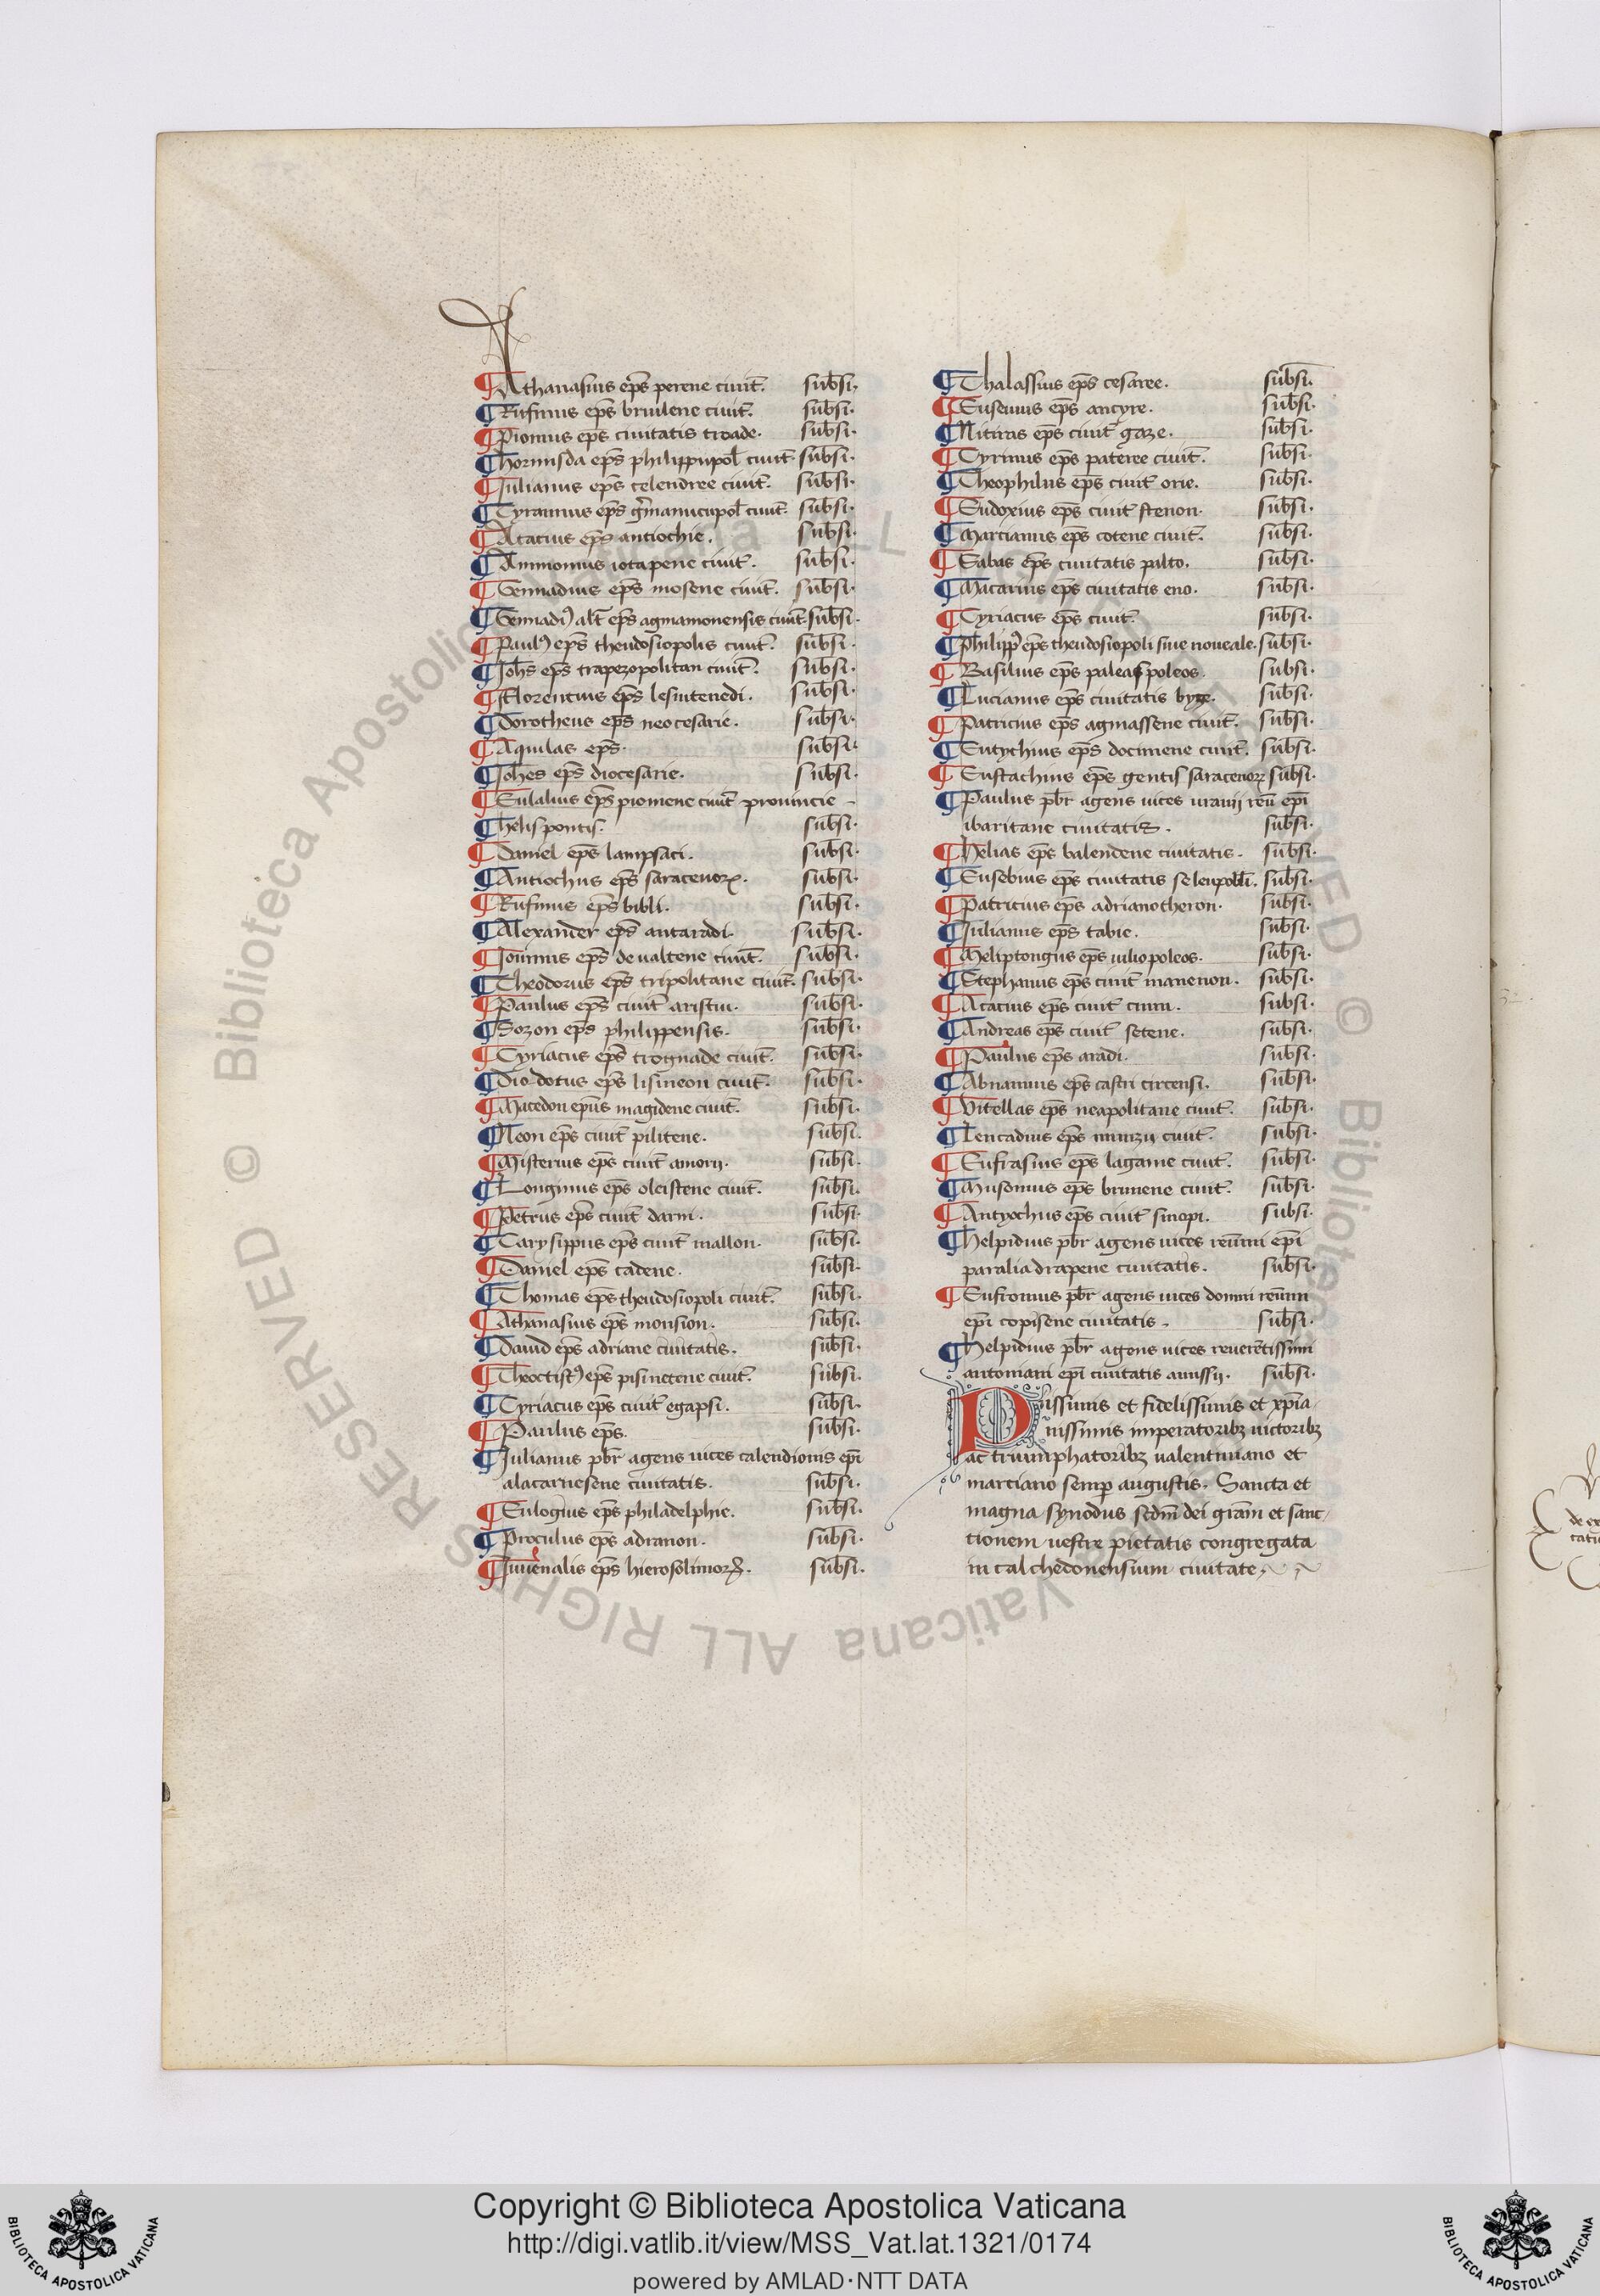 Athanasius ep̅s perene ciuit̅. sub̅si.
Rufinus ep̅s briulene ciuit̅. sub̅si.
Pionius ep̅s ciuitatis troade. sub̅si.
Hormisda ep̅s philippupol̅ ciuit̅. sub̅si.
Iulianus ep̅s celendree ciuit̅. sub̅si.
Tyrannus ep̅s gr̅manicupol̅ ciuit̅. sub̅si.
Acacius ep̅s antiochie. sub̅si.
Ammonius iotapene ciuit̅. sub̅si.
Gennadius ep̅s mosene ciuit̅. sub̅si.
Gennadiꝰ alt̅ ep̅s agmamonensis ciuit̅. sub̅si.
Paulꝰ ep̅s theudosiopolis ciuit̅. sub̅si.
Ioh̅s ep̅s trapezopolitan ciuit̅. sub̅si.
Florencius ep̅s lesuitenedi. sub̅si.
Dorotheus ep̅s neocesarie. sub̅si.
Aquilas ep̅s. sub̅si.
Ioh̅es ep̅s diocesarie. sub̅si.
Eulalius ep̅s piomene ciuit̅ prouincie
helisponti. sub̅si.
Daniel ep̅s lampsaci. sub̅si.
Antiochus ep̅s saracenoꝝ. sub̅si.
Rufinus ep̅s bibli. sub̅si.
Alexander ep̅s antaradi. sub̅si.
Iouinus ep̅s deualtene ciuit̅. sub̅si.
Theodorus ep̅s tripolitane ciuit̅. sub̅si.
Paulus ep̅s ciuit̅ aristui. sub̅si.
Sozon ep̅s philippensis. sub̅si.
Cyriacus ep̅s trognade ciuit̅. sub̅si.
Diodotus ep̅s lisineon ciuit̅. sub̅si.
Macedon ep̅us magidene ciuit̅. sub̅si.
Neon ep̅s ciuit̅ pilitene. sub̅si.
Misterius ep̅s ciuit̅ amorii. sub̅si.
Longinus ep̅s oleistene ciuit̅. sub̅si.
Petrus ep̅s ciuit̅ darni. sub̅si.
Carysippus ep̅s ciuit̅ mallon. sub̅si.
Daniel ep̅s cadene. sub̅si.
Thomas ep̅s theudosiopoli ciuit̅. sub̅si.
Athanasius ep̅s monsion. sub̅si.
Dauid ep̅s adriane ciuitatis. sub̅si.
Theoctistꝰ ep̅s pisinetene ciuit̅. sub̅si.
Cyriacus ep̅s ciuit̅ egapsi. sub̅si.
Paulus ep̅s. sub̅si.
Iulianus pb̅r agens uices calendionis ep̅i
alacarnesene ciuitatis. sub̅si.
Eulogius ep̅s philadelphie. sub̅si.
Proculus ep̅s adranon. sub̅si.
Iuuenalis ep̅s hierosolimoꝝ. sub̅si.
Thalassius ep̅s cesaree. sub̅si.
Eusenius ep̅s ancyre. sub̅si.
Nitiras ep̅s ciuit̅ gaze. sub̅si.
Cyrinus ep̅s pateree ciuit̅. sub̅si.
Theophilus ep̅s ciuit̅ orie. sub̅si.
Eudoxius ep̅s ciuit̅ stenon. sub̅si.
Marcianus ep̅s cotene ciuit̅. sub̅si.
Sabas ep̅s ciuitatis palto. sub̅si.
Macarius ep̅s ciuitatis eno. sub̅si.
Cyriacus ep̅s ciuit̅. sub̅si.
Philippꝰ ep̅s theudosiopoli siue noueale. sub̅si.
Basilius ep̅s paleaspoleos. subsi.
Lucianus ep̅s ciuitatis byge. sub̅si.
Patricius ep̅s agmassene ciuit̅. sub̅si.
Eutychius ep̅s docimene ciuit̅. sub̅si.
Eustachius ep̅s gentis saracenoꝝ sub̅si.
Paulus pb̅r agens uices uranij reu̅ ep̅i
ibaritane ciuitatis. sub̅si.
Helias ep̅s balendene ciuitatis. sub̅si.
Eusebius ep̅s ciuitatis seleupoli. sub̅si.
Patricius ep̅s adrianotheron. sub̅si.
Iulianus ep̅s tabie. sub̅si.
Meliptongus ep̅s iuliopoleos. sub̅si.
Stephanus ep̅s ciuit̅ manenon. sub̅si.
Acacius ep̅s ciuit̅ cinni. subsi.
Andreas ep̅s ciuit̅ setene. sub̅si.
Paulus ep̅s aradi. sub̅si.
Abnamus ep̅s castri circensi. sub̅si.
Vitellas ep̅s neapolitane ciuit̅. sub̅si.
Leucadius ep̅s minzu ciuit̅. sub̅si.
Eufrasius ep̅s laganie ciuit̅. sub̅si.
Musonius ep̅s brunene ciuit̅. sub̅si.
Antyochus ep̅s ciuit̅ sinopi. subsi.
Helpidius pb̅r agens uices reu̅mi ep̅i
paraliadrapene ciuitatis. sub̅si.
Eufronius pb̅r agens uices domni reu̅mi
ep̅i copisene ciuitatis. sub̅si.
Helpidius pb̅r agens uices reuere̅tissimi
antoniani ep̅i ciuitatis amissij. sub̅si.
Piissimis et fidelissimis et xp̅ia
nissimis imperatoribꝫ uictoribꝫ
ac triumphatoribꝫ ualentiniano et
marciano semp̲ augustis. Sancta et
magna synodus scdm̅ dei gra̅m et sanc
tionem uestre pietatis congregata
in calchedonensium ciuitate.
de ex
Copyright © Biblioteca Apostolica Vaticana
http://digi.vatlib.it/view/MSS_Vat.lat.1321/0174
powered by AMLAD·NTT DATA
BIBLIOTECA APOSTOLICA VATICANA
BIBLIOTECA APOSTOLICA VATICANA
© Biblioteca Apostolica Vaticana ALL RIGHTS RESERVED © Biblioteca Apostolica Vaticana ALL RIGHTS RESERVED